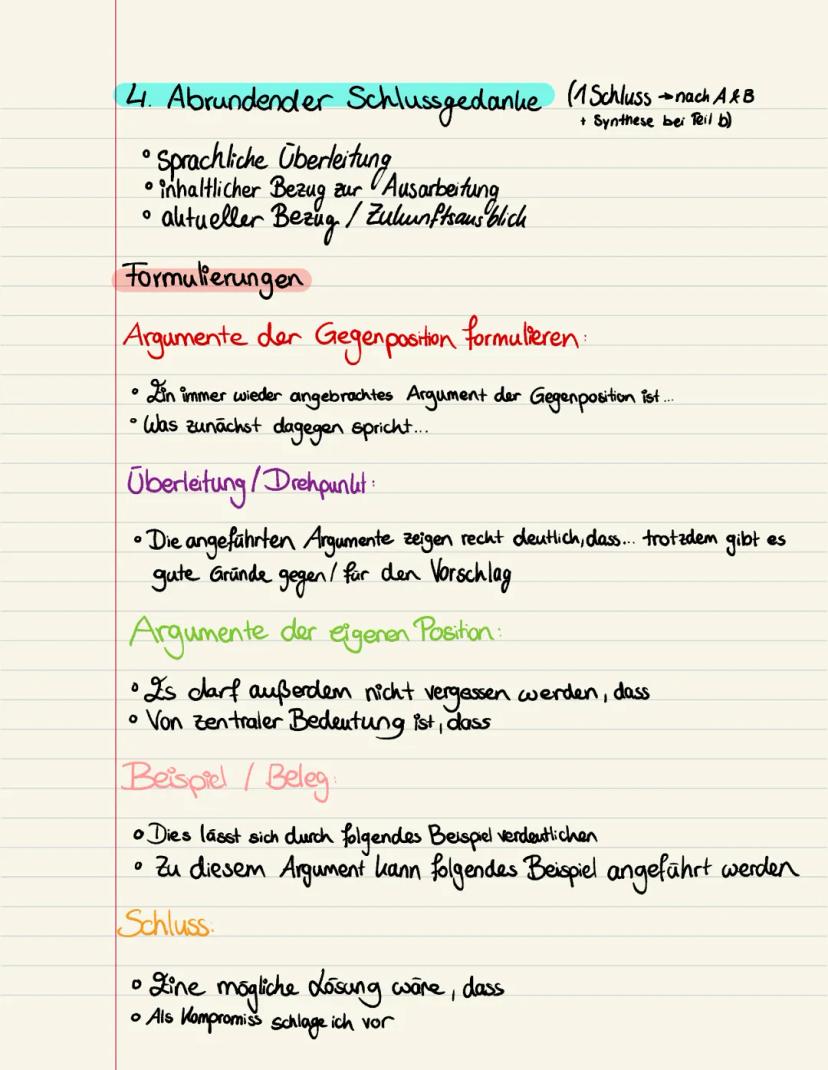 4. Abrundender Schlussgedanke (1 Schluss → nach A & B
+ Synthese bei Teil b)
° sprachliche Überleitung
° inhaltlicher Bezug zur Ausarbeitung
° aktueller Bezug / Zukunftsausblick
Formulierungen
Argumente der Gegenposition formulieren:
° Ein immer wieder angebrachtes Argument der Gegenposition ist...
° Was zunächst dagegen spricht...
Überleitung / Drehpunkt:
° Die angeführten Argumente zeigen recht deutlich, dass... trotzdem gibt es
gute Gründe gegen / für den Vorschlag
Argumente der eigenen Position:
° Es darf außerdem nicht vergessen werden, dass
° Von zentraler Bedeutung ist, dass
Beispiel / Beleg:
° Dies lässt sich durch folgendes Beispiel verdeutlichen
° Zu diesem Argument kann folgendes Beispiel angeführt werden
Schluss:
° Eine mögliche Lösung wäre, dass
° Als Kompromiss schlage ich vor